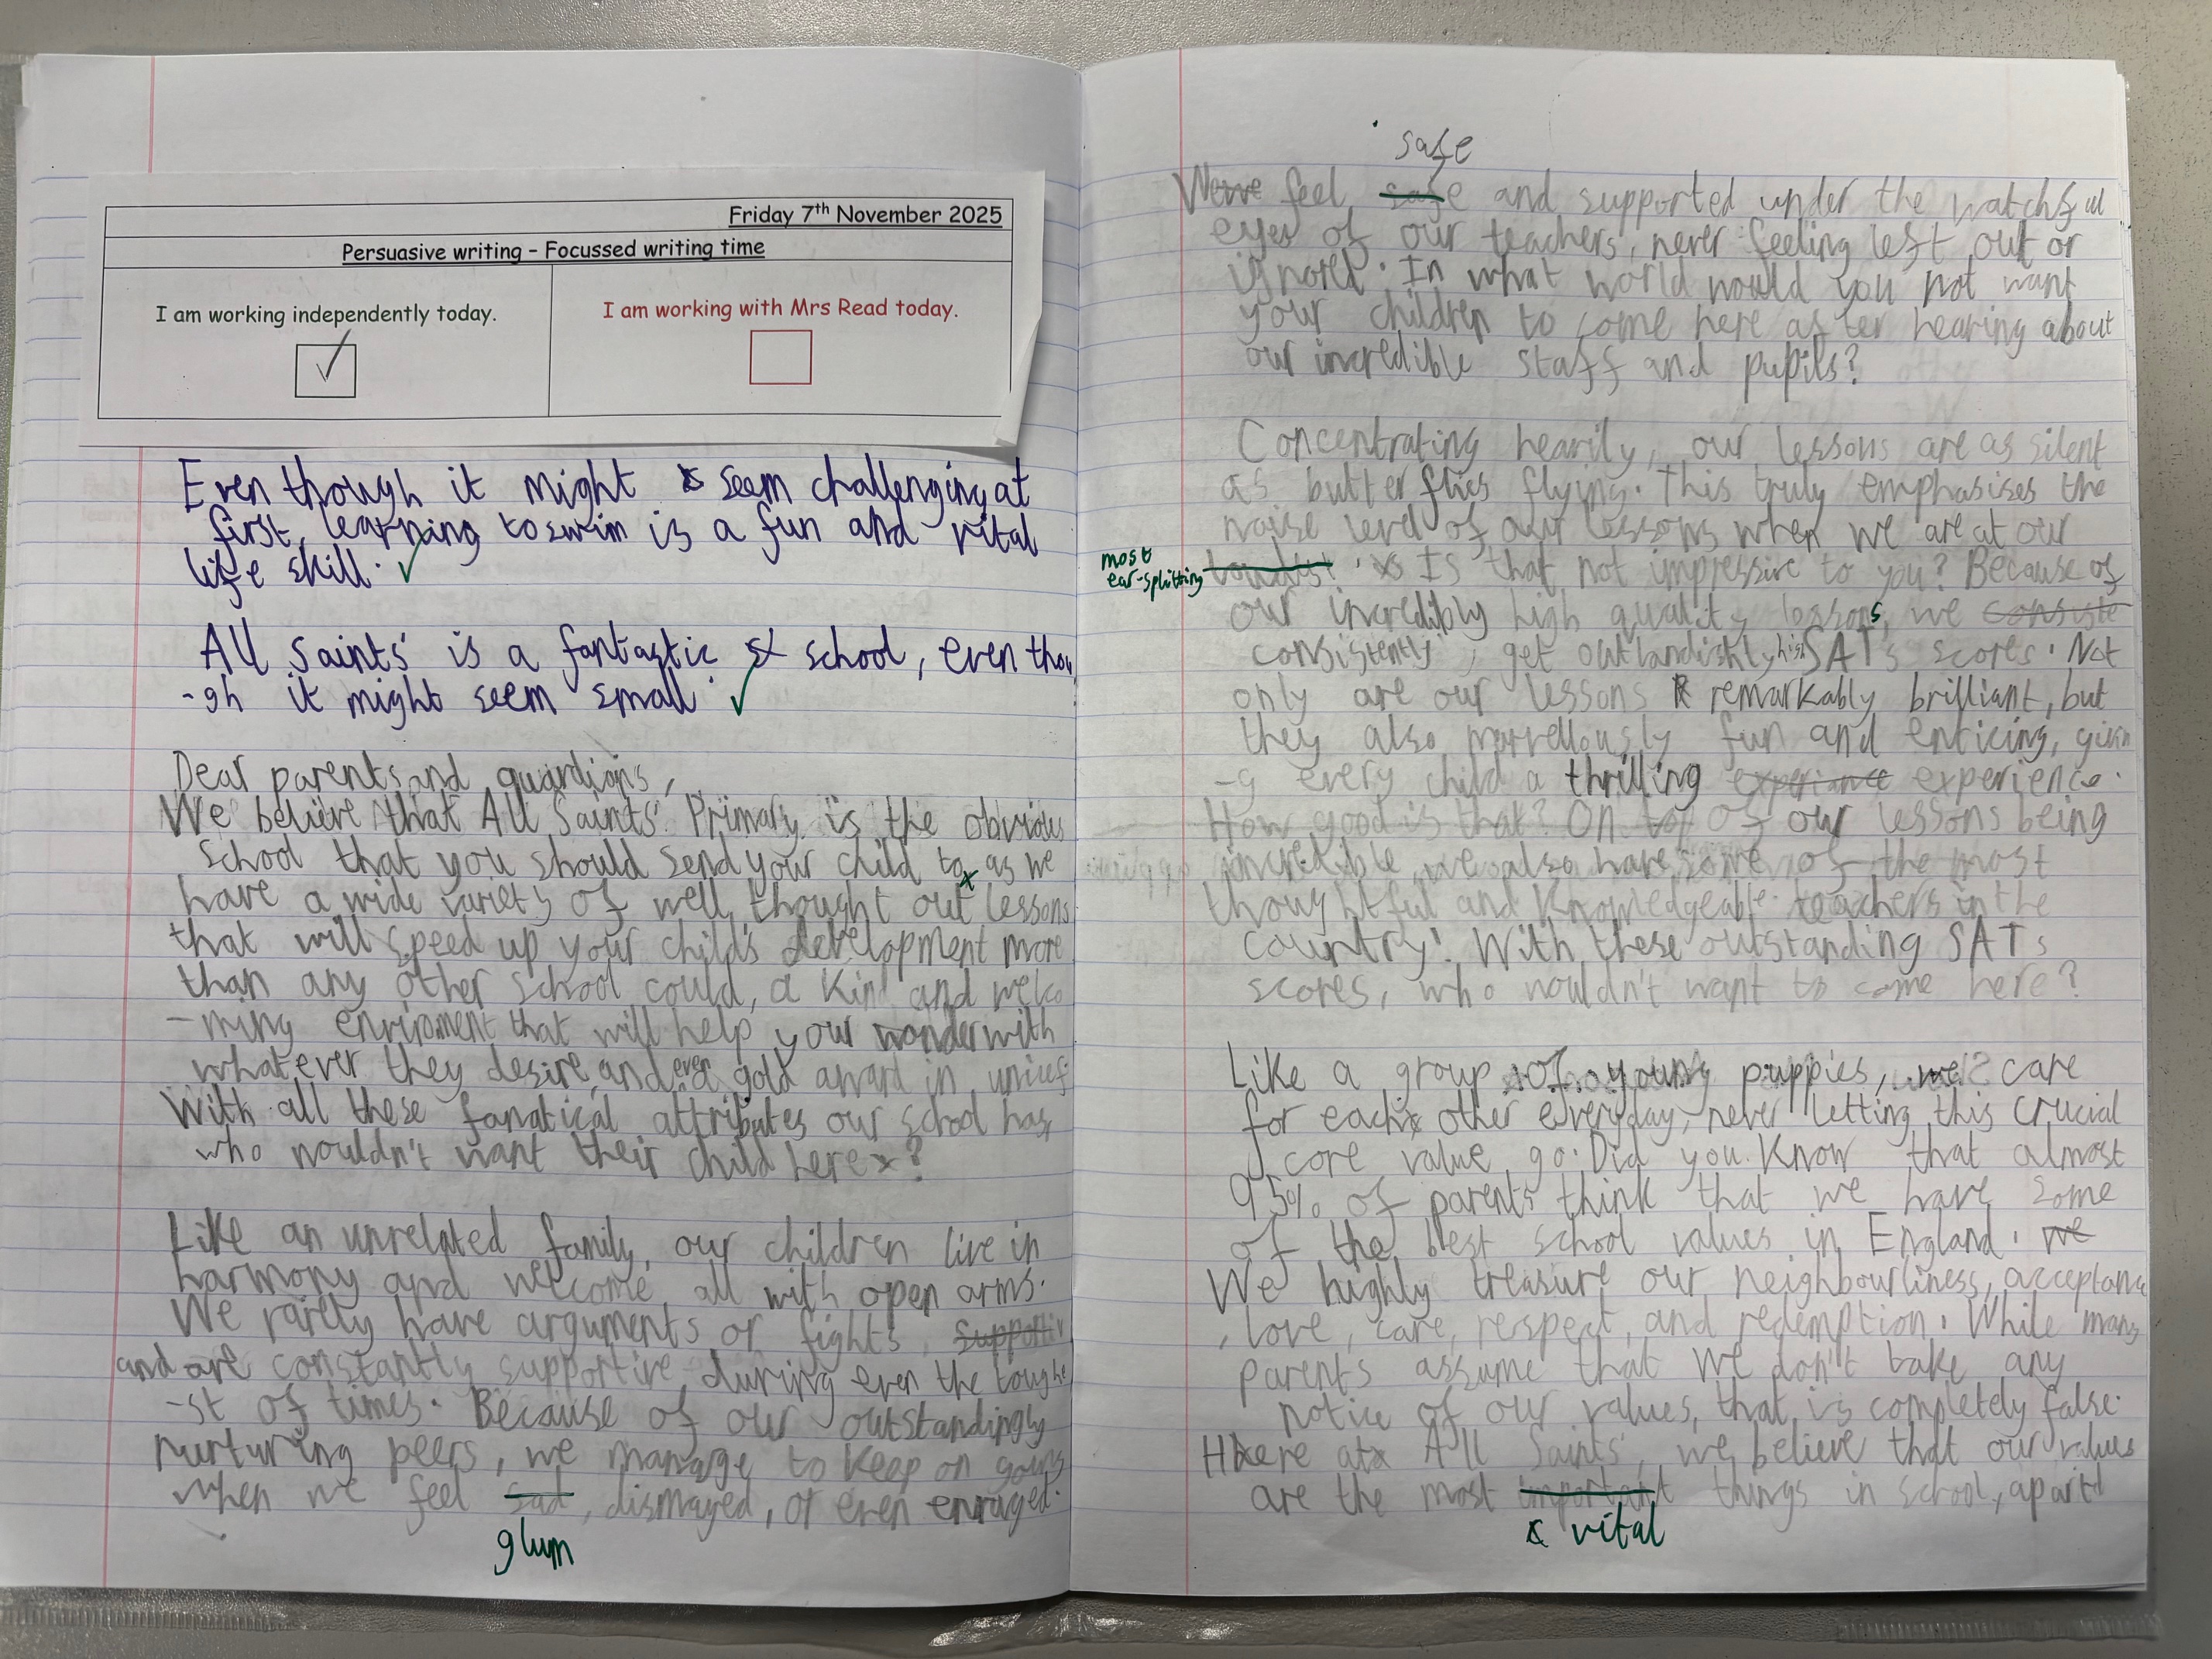 Friday 7th November 2025
Persuasive writing – Focussed writing time
I am working independently today.
I am working with Mrs Read today.
Even though it might seem challenging at
first, learning to swim is a fun and vital
life skill.
All Saints' is a fantastic school, even thou
-gh it might seem small.
Dear parents and guardians,
We believe that All Saints' Primary is the obvious
school that you should send your child to as we
have a wide variety of well thought out lessons
that will speed up your child's development more
than any other school could, a kind and welco
-ming enviroment that will help your wonder with
whatever they desire, and even a gold award in unicef
With all these fanatical attributes our school has,
who wouldn't want their child here?
Like an unrelated family, our children live in
harmony and welcome all with open arms.
We rarely have arguments or fights, supportiv
and are constantly supportive during even the toughe
-st of times. Because of our outstandingly
nurturing peers, we manage to keep on going
when we feel sad, dismayed, or even enraged.
glum
safe
We feel safe and supported under the watchful
eyes of our teachers, never feeling left out or
ignored. In what world would you not want
your children to come here after hearing about
our incredible staff and pupils?
Concentrating heavily, our lessons are as silent
as butterflies flying. This truly emphasises the
noise level of our lessons when we are at our
most
ear-splitting loudest. Is that not impressive to you? Because of
our incredibly high quality lessons, we consiste
consistently, get outlandishly high SATs scores. Not
only are our lessons remarkably brilliant, but
they also marvellously fun and enticing, givin
-g every child a thrilling experiance experience.
How good is that? On top of our lessons being
incredible, we also have some of the most
thoughtful and knowledgeable teachers in the
country! With these outstanding SATs
scores, who wouldn't want to come here?
Like a group of young puppies, we care
for each other everyday, never letting this crucial
core value go. Did you know that almost
95% of parents think that we have some
of the best school values in England. we
We highly treasure our neighbourliness, acceptance
, love, care, respect, and redemption. While many
parents assume that we don't take any
notice of our values, that is completely false.
Here at All Saints', we believe that our values
are the most important things in school, apart
vital